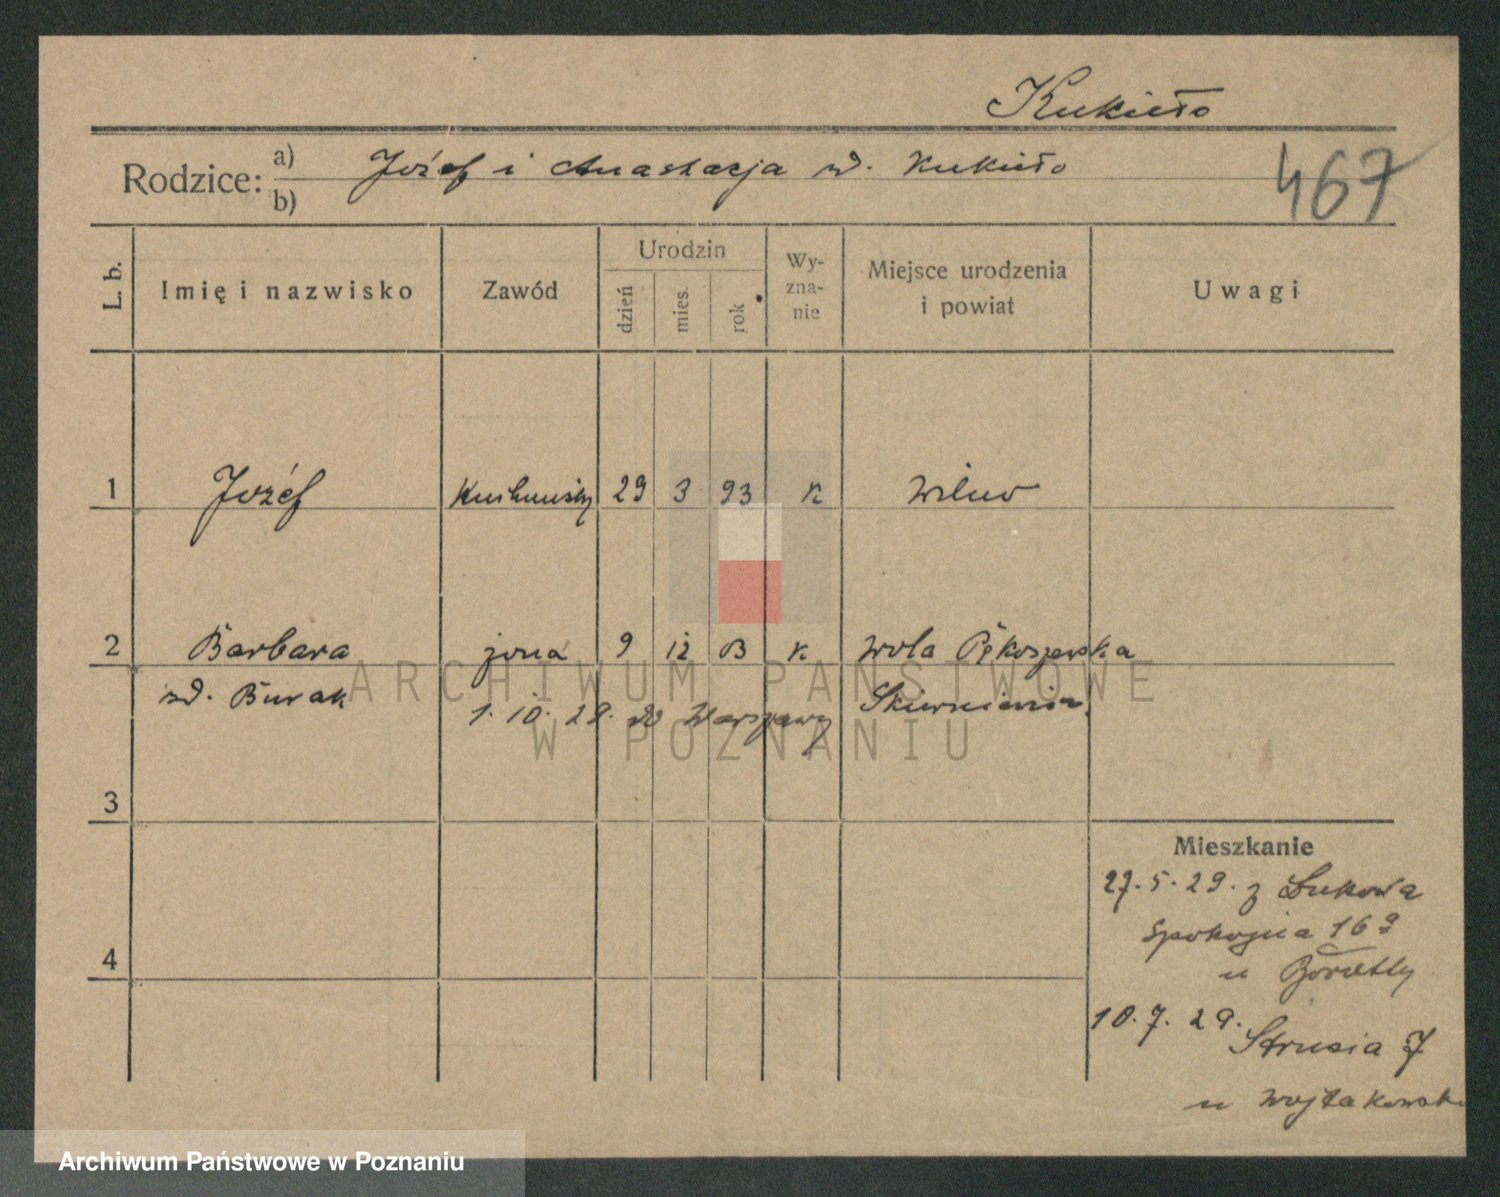 Kukieło
Rodzice: a) Józef i Anastazja zd. Kukieło
b)
467
L. b.
Imię i nazwisko
Zawód
Urodzin
dzień
mies.
rok
Wy-
zna-
nie
Miejsce urodzenia
i powiat
Uwagi
1 Józef 29 3 93 K Wilno
2 Barbara żona 9 12 K Wola Pękoszewska
zd. Burak Skierniewice
1. 10. 29. do Warszawy
ARCHIWUM PAŃSTWOWE
W POZNANIU
3
Mieszkanie
27. 5. 29. z Łukowa
Spokojna 16a
u
4
10. 7. 29.
Strusia 7
u Wojtakowski
Archiwum Państwowe w Poznaniu